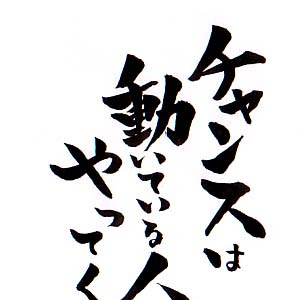 チャンスは
動いている人
やってく